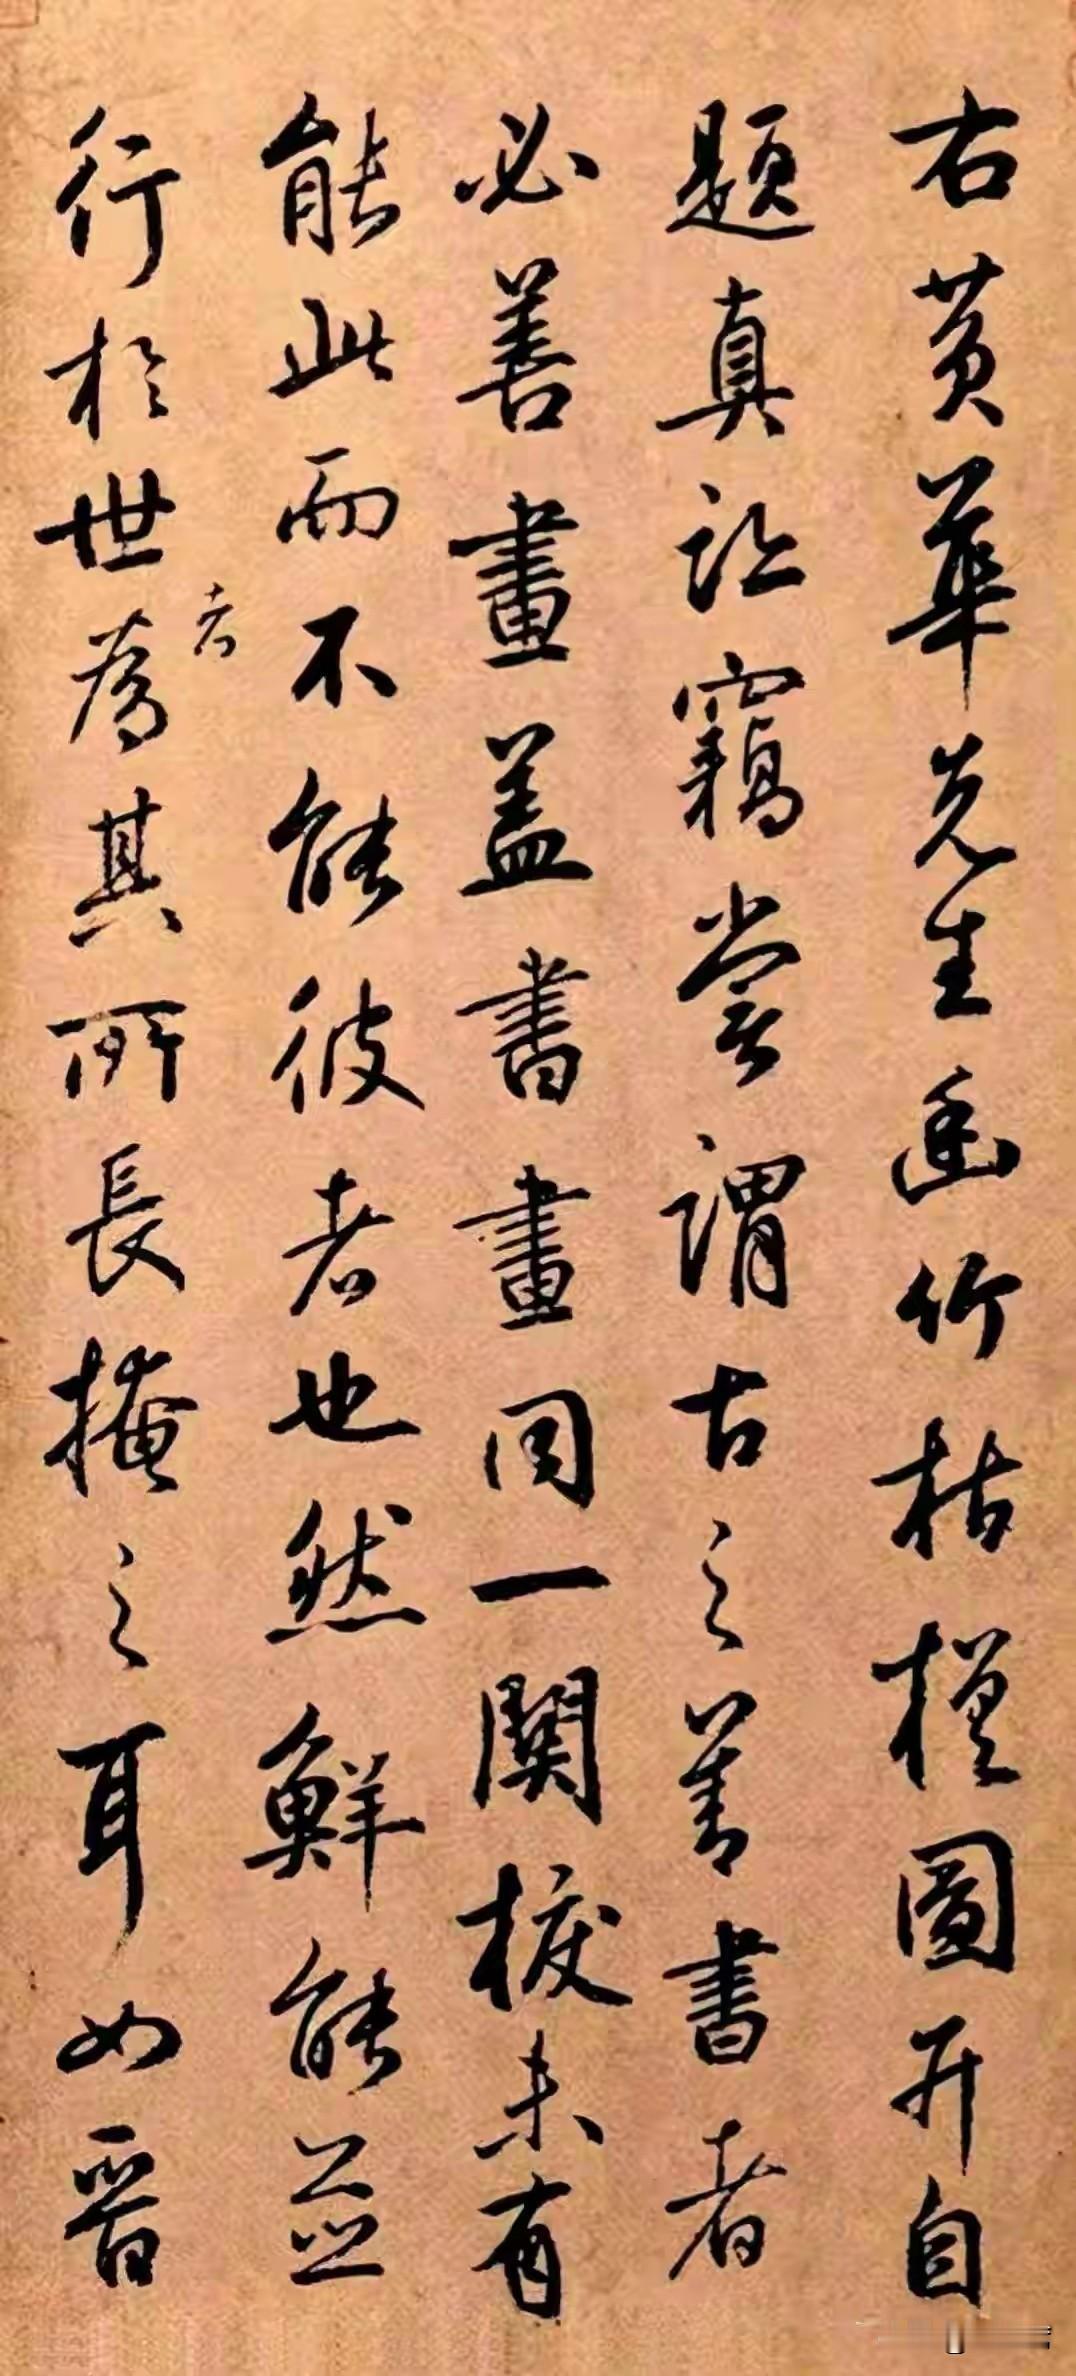 右黄華先生幽竹枯槎圖并自
題真迹竊嘗謂古之善書者
必善畫蓋書畫同一關捩未有
能此而不能彼者也然鮮能並
行於世者為其所長掩之耳如晉